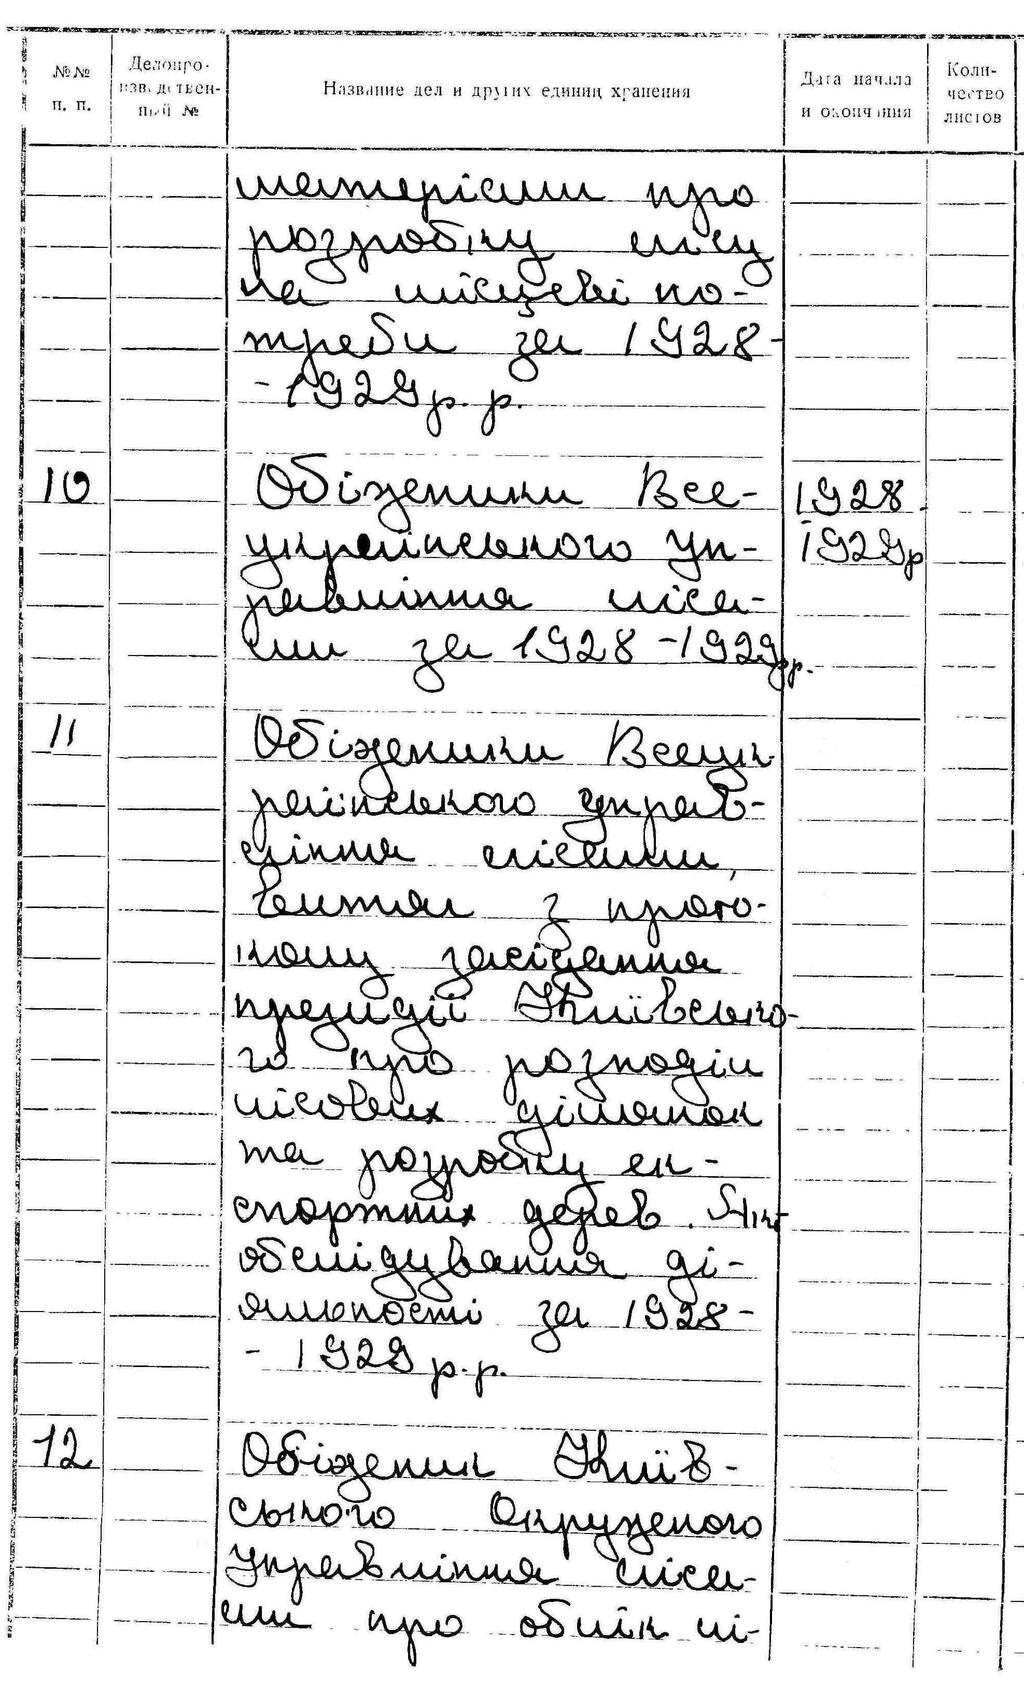 №№ п. п.
Делопро-
изводствен-
ный №
Название дел и других единиц хранения
Дата начала
и окончания
Коли-
чество
листов
матеріали про
розробку лісу
на місцеві по-
треби за 1928-
-1929 р. р.
10
Обіжники Все-
українського Уп-
равління ліса-
ми за 1928-1929 рр.
1928-
1929р
11
Обіжники Всеук
раїнського управ-
ління лісами,
витяг з прото-
колу засідання
президії Київсько-
го про розподіл
лісових ділянок
та розробку ек-
спортних дерев. Акт
обслідування ді-
яльності за 1928-
- 1929 р. р.
12
Обіженик Київ-
ського Окружного
Управління ліса-
ми про облік лі-